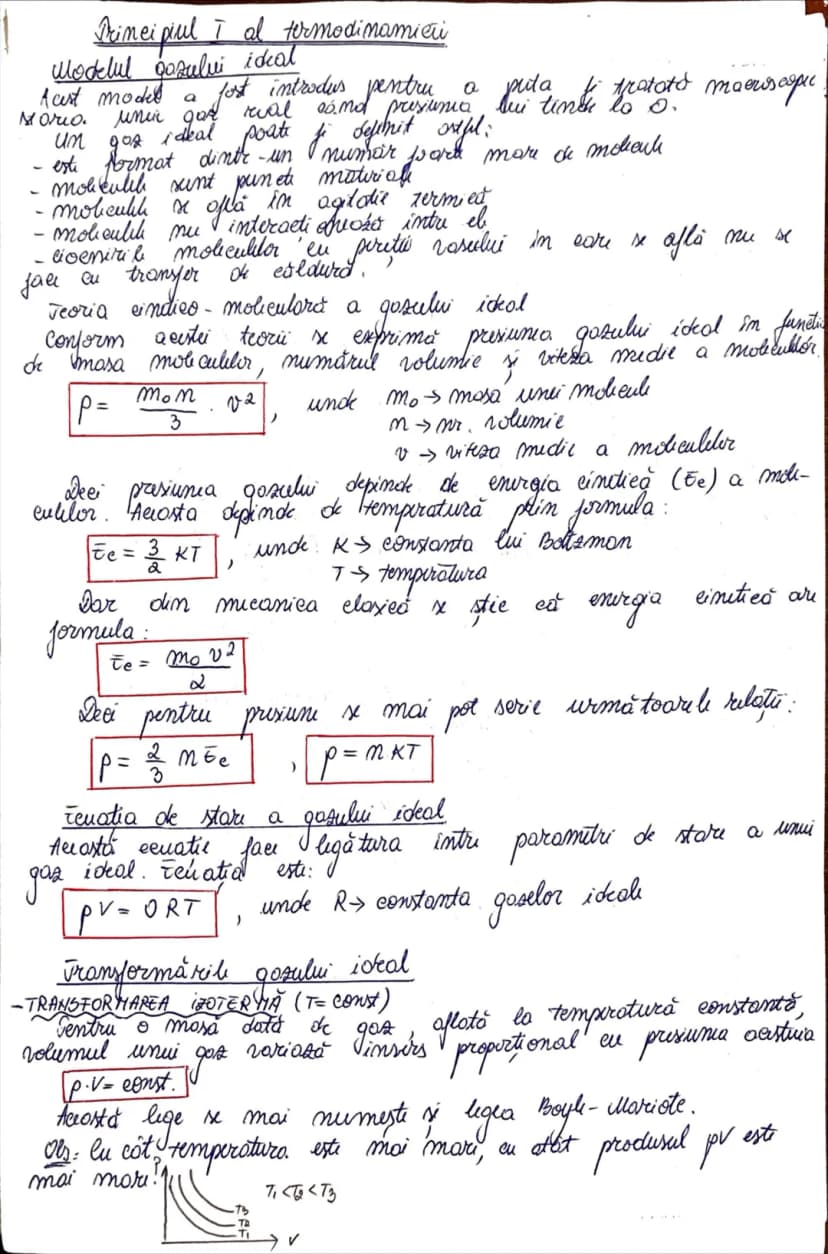 Principiul I al termodinamicii
Modelul gazului ideal
Acest model a fost introdus pentru a putea fi tratată macroscopic
starea unui gaz real când presiunea lui tinde la 0.
Un gaz ideal poate fi definit astfel:
- este format dintr-un număr foarte mare de molecule
- moleculele sunt puncte materiale
- moleculele se află în agitație termică
- moleculele nu interacționează între ele
- ciocnirile moleculelor cu pereții vasului în care se află nu se
face cu transfer de căldură.
Teoria cinetico-moleculară a gazului ideal
Conform acestei teorii se exprimă presiunea gazului ideal în funcție
de masa moleculelor, numărul volumic și viteza medie a moleculelor.
p = m₀n/3 · v², unde m₀ → masa unei molecule
n → nr. volumic
v → viteza medie a moleculelor
Deci presiunea gazului depinde de energia cinetică (Ec) a mole-
culelor. Aceasta depinde de temperatură prin formula:
Ec = 3/2 KT, unde K → constanta lui Boltzman
T → temperatura
Dar din mecanica clasică se știe că energia cinetică are
formula:
Ec = m₀v²/2
Deci pentru presiune se mai pot scrie următoarele relații:
p = 2/3 n Ec , p = n KT
Ecuația de stare a gazului ideal
Această ecuație face legătura între parametri de stare a unui
gaz ideal. Ecuația este:
pV = υRT , unde R → constanta gazelor ideale
Transformările gazului ideal
- TRANSFORMAREA IZOTERMĂ (T= const)
Pentru o masă dată de gaz, aflată la temperatură constantă,
volumul unui gaz variază invers proporțional cu presiunea acestuia
p·V= const.
Această lege se mai numește și legea Boyle-Mariote.
Obs: Cu cât temperatura este mai mare, cu atât produsul pV este
mai mare!
p
T₁<T₂<T₃
T₃
T₂
T₁
V